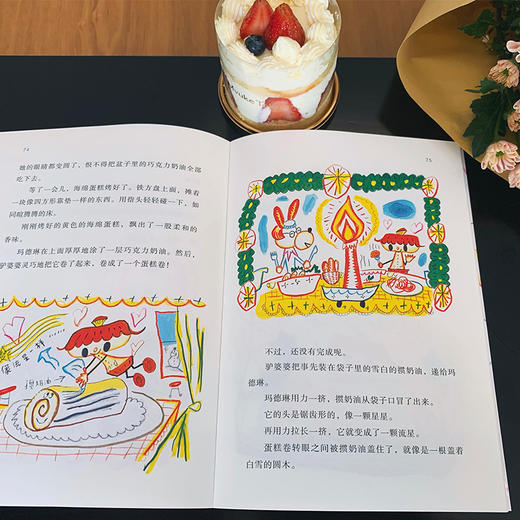 74
她的眼睛都变圆了，恨不得把盆子里的巧克力奶油全部
吃下去。
等了一会儿，海绵蛋糕烤好了。铁方盘上面，摊着
一块像四方形靠垫一样的东西。用指头轻轻碰一下，如
同暄腾腾的床。
刚刚烤好的黄色的海绵蛋糕，飘出了一股柔和的
香味。
玛德琳在上面厚厚地涂了一层巧克力奶油。然后，
驴婆婆灵巧地把它卷了起来，卷成了一个蛋糕卷！
像流星一样……
掼奶油
75
不过，还没有完成呢。
驴婆婆把事先装在袋子里的雪白的掼奶油，递给玛
德琳。
玛德琳用力一挤，掼奶油从袋子口冒了出来。
它的头是锯齿形的，像一颗星星。
再用力拉长一挤，它就变成了一颗流星。
蛋糕卷转眼之间被掼奶油盖住了，就像是一根盖着
白雪的圆木。